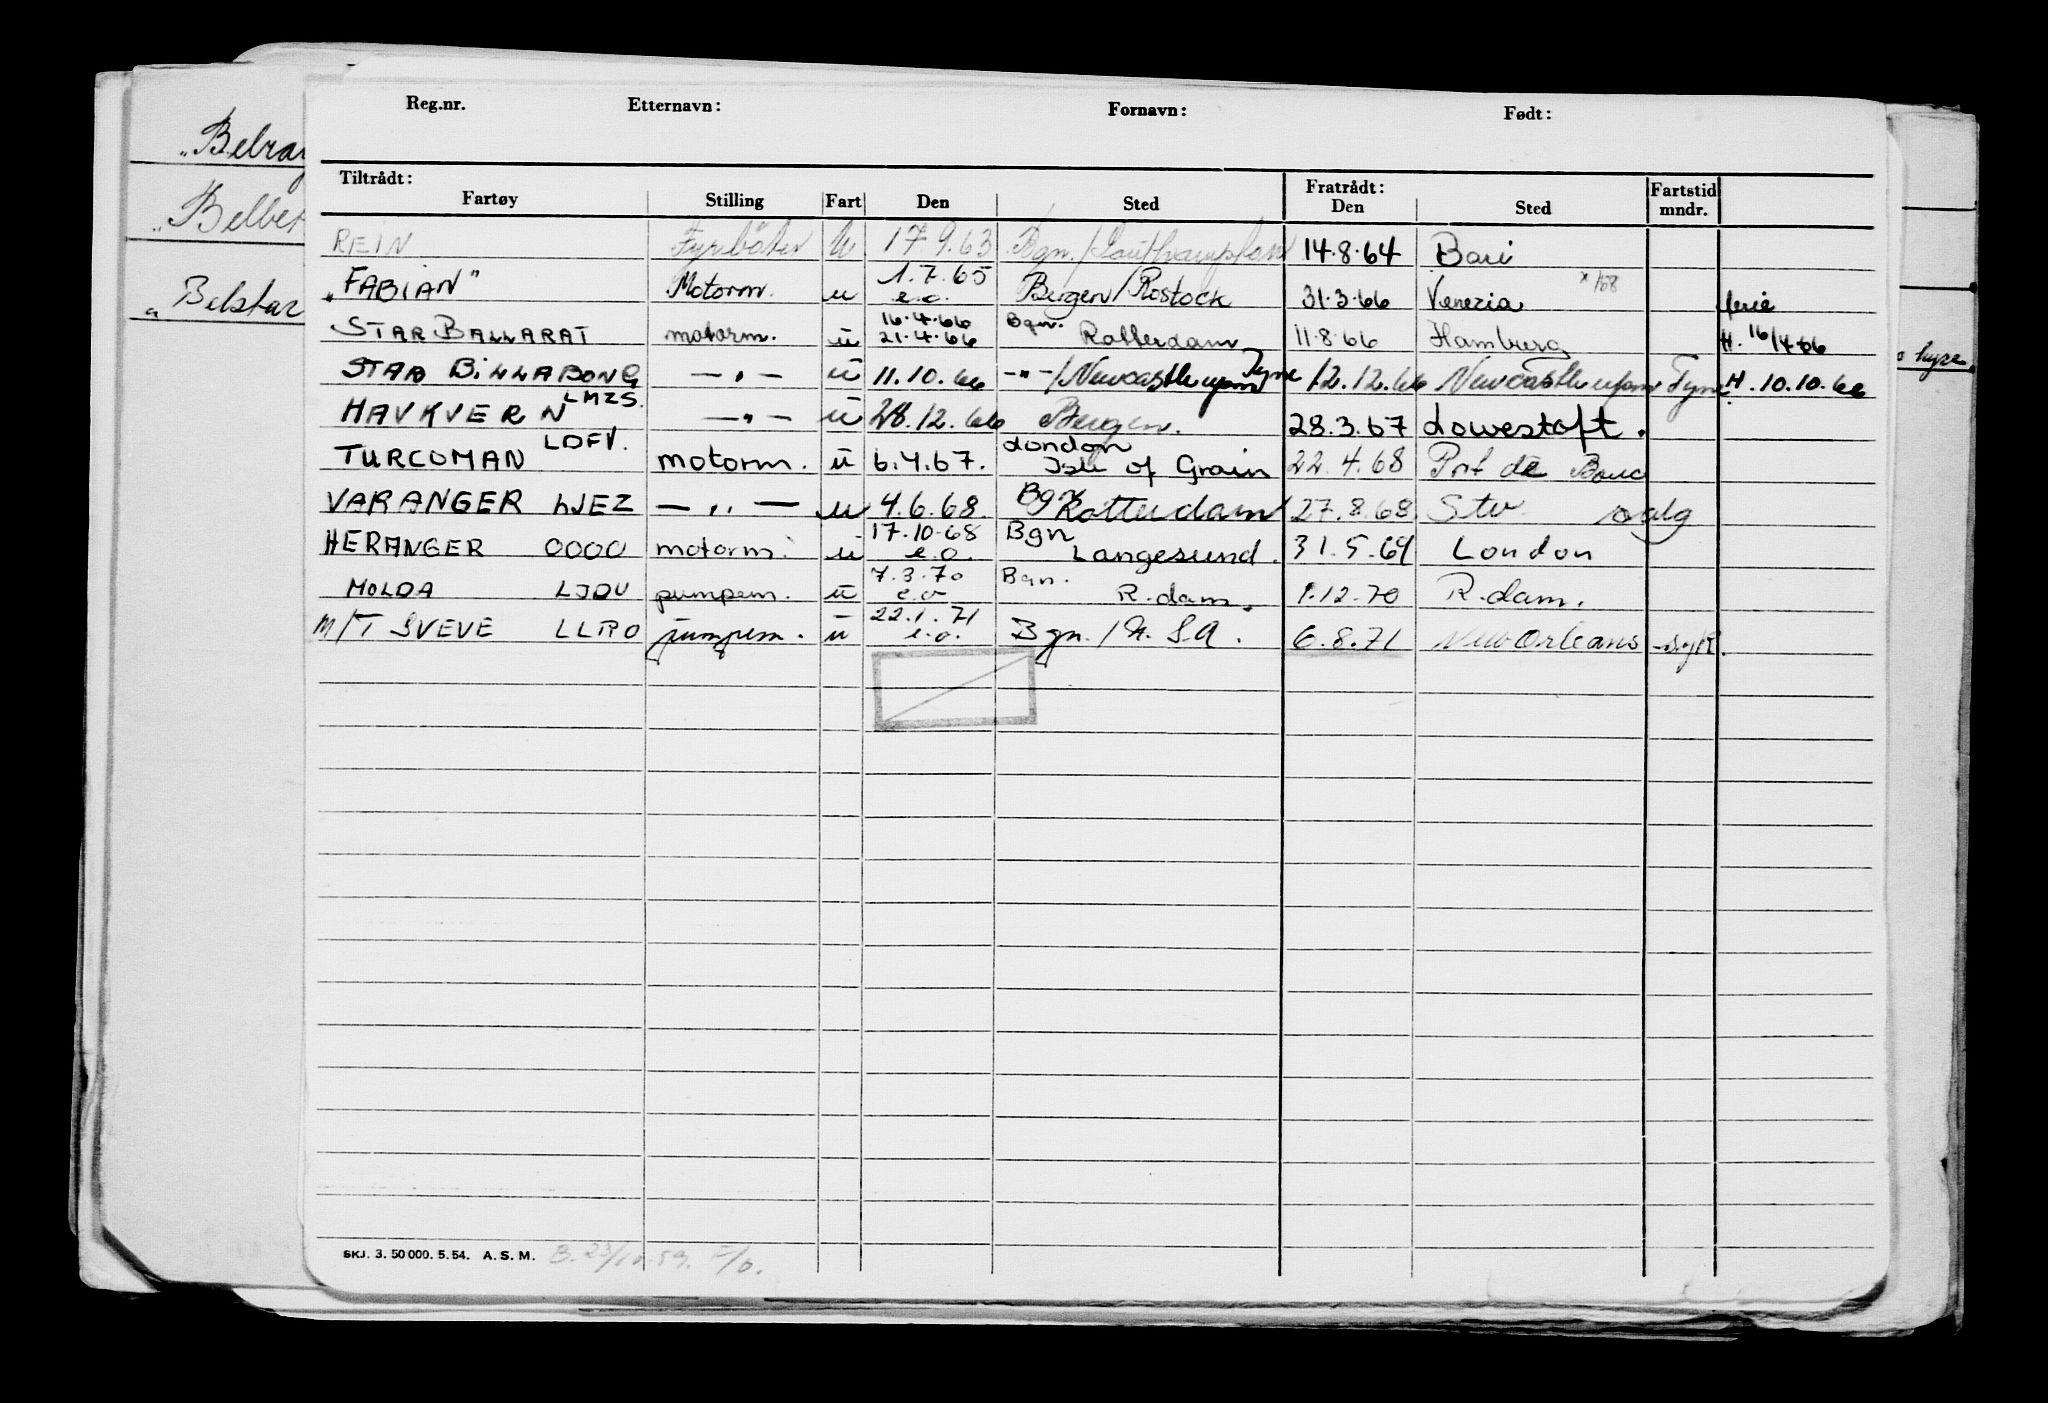 Reg.nr. Etternavn: Fornavn: Født:
Tiltrådt: Fratrådt: Fartstid
Fartøy Stilling Fart Den Sted Den Sted mndr.
REIN Fyrbøter u 17 9.63 Bgn./Southampton 14.8.64 Bari
"FABIAN" Motorm. u 1.7.65 e.o. Bergen/Rostock 31.3.66 Venezia ferie
STAR BALLARAT motorm. u 16.4.66 21.4.66 Bgn. Rotterdam 11.8.66 Hamburg H. 16/4-66
STAR BILLABONG — " — u 11.10.66 - " - /Newcastle upon Tyne 12.12.66 Newcastle upon Tyne H. 10.10.66
HAVKVERN LMZS. — " — u 28.12.66 Bergen. 28.3.67 Lowestoft.
TURCOMAN LDFV. motorm. u 6.4.67. London Isle of Grain 22.4.68 Port de Bouc
VARANGER LJEZ — " — u 4.6.68. Bgn Rotterdam 27.8.68 Stv. salg
HERANGER OOOO motorm. u 17.10.68 e.o. Bgn Langesund. 31.5.69 London
MOLDA LJDU pumpem. u 7.3.70 e.o Bgn. R.dam. 1.12.70 R.dam.
M/T SVEVE LLPO pumpem. u 22.1.71 e.o. Bgn./U.S.A. 6.8.71 New Orleans -syk.
SKJ. 3. 50 000. 5. 54. A. S. M.
"Belray
"Belbet
"Belstar
hyre